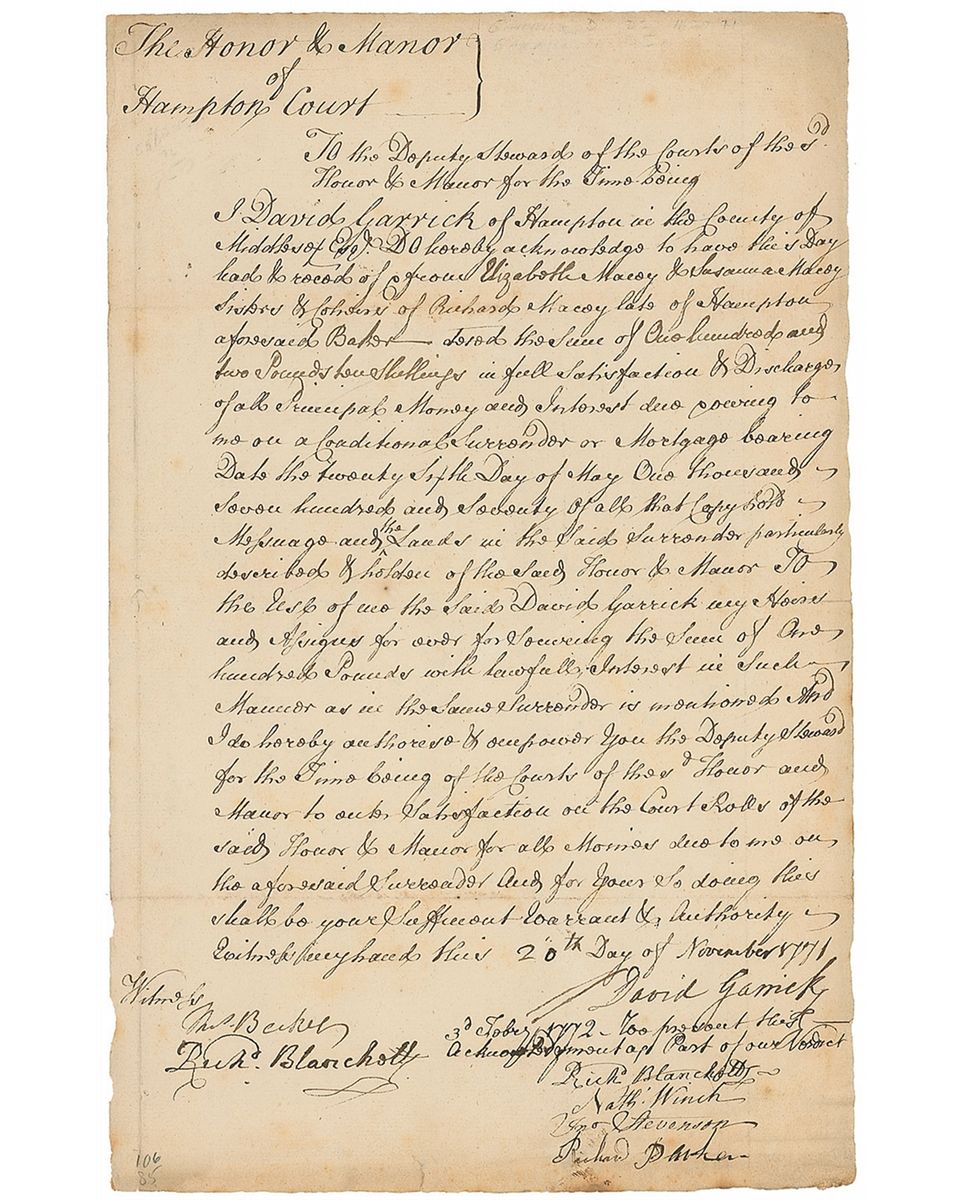 The Honor & Manor
of
Hampton Court
To the Deputy Steward of the Courts of the sd
Honor & Manor for the Time being
I David Garrick of Hampton in the County of
Middlesex Esqr. Do hereby acknowledge to have this Day
had & reced of & from Elizabeth Macey & Susanna Macey
Sisters & Coheirs of Richard Macey late of Hampton
aforesaid Baker decd the Sum of One hundred and
two Pounds ten Shillings in full Satisfaction & Discharge
of all Principal Money and Interest due & owing to
me on a Conditional Surrender or Mortgage bearing
Date the twenty Sixth Day of May One thousand
Seven hundred and Seventy Of all that Copyhold
Messuage and the Lands in the said Surrender particularly
described & holden of the said Honor & Manor To
the Use of me the said David Garrick my Heirs
and Assigns for ever for Securing the Sum of One
hundred Pounds with lawfull Interest in Such
Manner as in the Same Surrender is mentioned And
I do hereby authorise & empower You the Deputy Steward
for the Time being of the Courts of the sd Honor and
Manor to enter Satisfaction on the Court Rolls of the
said Honor & Manor for all Monies due to me on
the aforesaid Surrender And for Your So doing this
shall be your Sufficient Warrant & Authority
Witness my hand this 20th Day of November 1771
David Garrick
Witness
Becket
Richd. Blanchett
3d Febry 1772 We present this
Acknowledgment as Part of our Verdict
Richd. Blanchett
Nathl. Winch
Jno Stevenson
Richard Parker
106
85